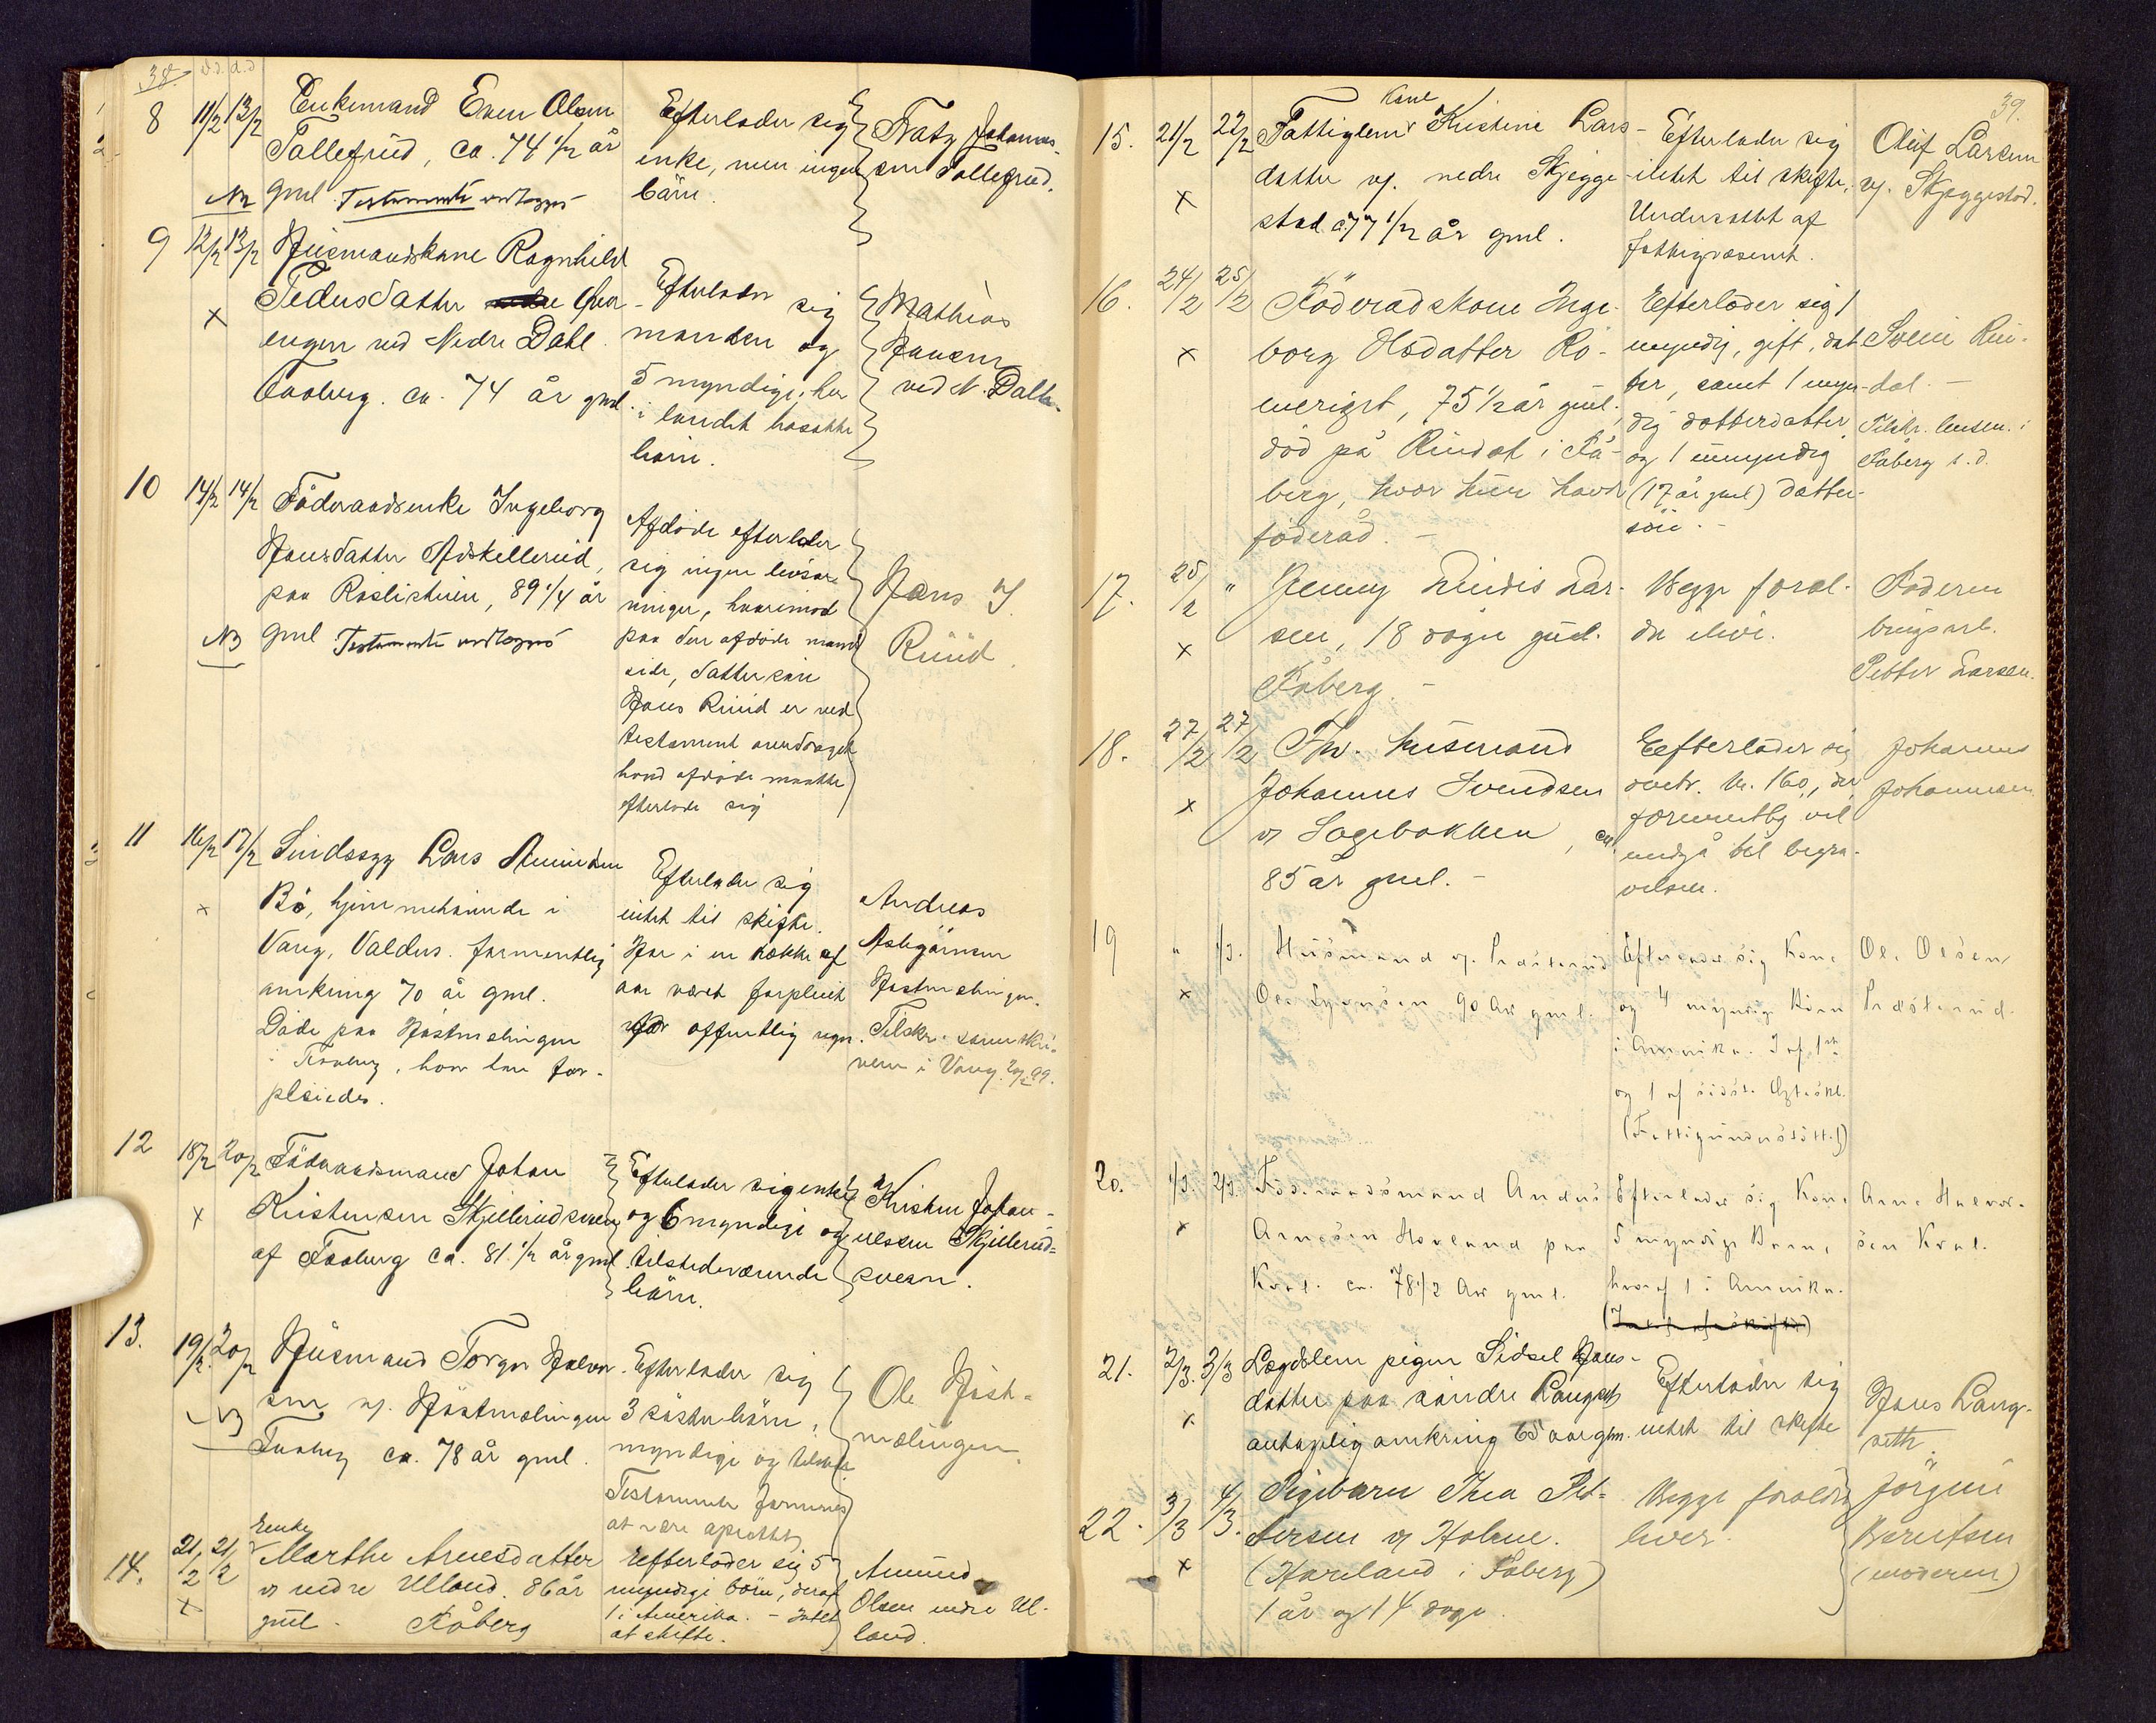 38.
8 11/2 13/2 Enkemand Even Olsen
Tollefrud, ca. 74 1/2 år
NB gml. Testamente vedlægges
Efterlader sig
enke, men ingen
børn.
Johannes-
sen Tollefrud.
9 12/2 13/2 Husmandskone Ragnhild
Pedersdatter
engen ved Nedre Dahl
x Faaberg. ca. 74 år gml.
Efterlader sig
manden og
5 myndige, her
i landet bosatte
børn.
Mathias
Hansen
ved N. Dahl
10 14/2 14/2 Föderaadsenke Ingeborg
Hansdatter Adskillerud,
paa Roslistuen, 89 1/4 år
NB gml. Testamente vedlagges
Afdøde efterlader
sig ingen livsar-
vinger, hvorimod
paa den afdøde mands
side, dattersøn
Hans Ruud er ved
testament overdraget
hvad afdøde maatte
efterlade sig
Hans
Ruud.
11 16/2 17/2 Sindssyg Lars Amundsen
x Bö, hjemmehørende i
Vang, Valders. formentlig
omkring 70 år gml.
Døde paa Høstmælingen
i Faaberg, hvor han for-
pleiedes.
Efterlader sig
intet til skifte.
Har i en række af
aar været forpleiet
for offentlig regn.
Andreas
Høstmælingen.
Tilskr. sorenskri-
veren i Vang 20/2 99.
12 18/2 20/2 Föderaadsmand Johan
x Kristensen Skjellerudsveen
af Faaberg ca. 81 1/2 år gml.
Efterlader sig enke
og 6 myndige og
tilstedeværende
börn.
Kristen Johan-
nessen Skjellerud-
sveen.
13. 19/2 20/2 Husmand Torger Halvor-
sen v. Høstmælingen
NB Faaberg ca. 78 år gml.
Efterlader sig
3 søsterbörn,
myndige og tilstede.
Testamente formenes
at være oprettet
Ole Høst-
mælingen
14. 21/2 21/2 Enke
Marthe Arnesdatter
x v nedre Ulland. 86 år
gml. Fåberg
Efterlader sig 5
myndige börn, deraf
1 i Amerika. - Intet
at skifte.
Amund
Olsen nedre Ul-
land.
39.
15. 21/2 22/2 Kone
Fattiglem Kristine Lars-
datter v. nedre Skjegge-
x stad. ca. 77 1/2 år gml.
Efterlader sig
intet til skifte.
Understøttet af
fattigvæsenet.
Oluf Larsen
v. Skjeggestad.
16. 24/2 25/2 Föderådskone Inge-
x borg Olsdatter Rö-
neriget, 75 1/2 år gml.
död på Rindal i Få-
berg, hvor hun havde
föderåd. -
Efterlader sig 1
myndig, gift, dat-
ter, samt 1 myn-
dig datterdatter
og 1 umyndig
(17 år gml) datter-
sön. -
Svein Rin-
dal. -
Tilskr. lensm. i
Fåberg s.d.
17. 25/2 " Jenny Lindis Lar-
x sen, 18 dage gml.
Fåberg. -
Begge foræl-
dre ilive.
Faderen
Petter Larsen.
18. 27/2 27/2 Fhv. husmand
x Johannes Svendsen
v Sagebakken, ca
85 år gml. -
Efterlader sig
kr. 160, der
formentlig vil
medgå til begra-
velsen.
Johannes
Johannessen
19 " 1/3. Husmand v. Præsterud
x Ole Syversen 90 Aar gml.
Efterlader sig Kone
og 4 myndige Börn
i Amerika. 3 af 1ste
og 1 af sidste Ægteskb.
(Fattigunderstöttet)
Ole Olsen
Præsterud.
20. 1/3. 2/3. Föderaadsmand Anders
x Arnesen Hovland paa
Kval. ca. 78 1/2 Aar gml.
Efterlader sig Kone
5 myndige Børn,
hvoraf 1 i Amerika.
Arne Halvor-
sen Kval.
21. 2/3. 3/3 Lægdslem pigen Sidsel Hans-
datter paa søndre Langseth
x antagelig omkring 65 aar gml.
Efterlader sig
intet til skifte
Hans Lang-
seth.
22. 3/3 4/3. Pigebarn Thea Pet-
tersen v Holme.
x (Hovland i Faberg)
1 år og 14 dage.
Begge forældre
lever.
Jørgine
Berntsen
(moderen)